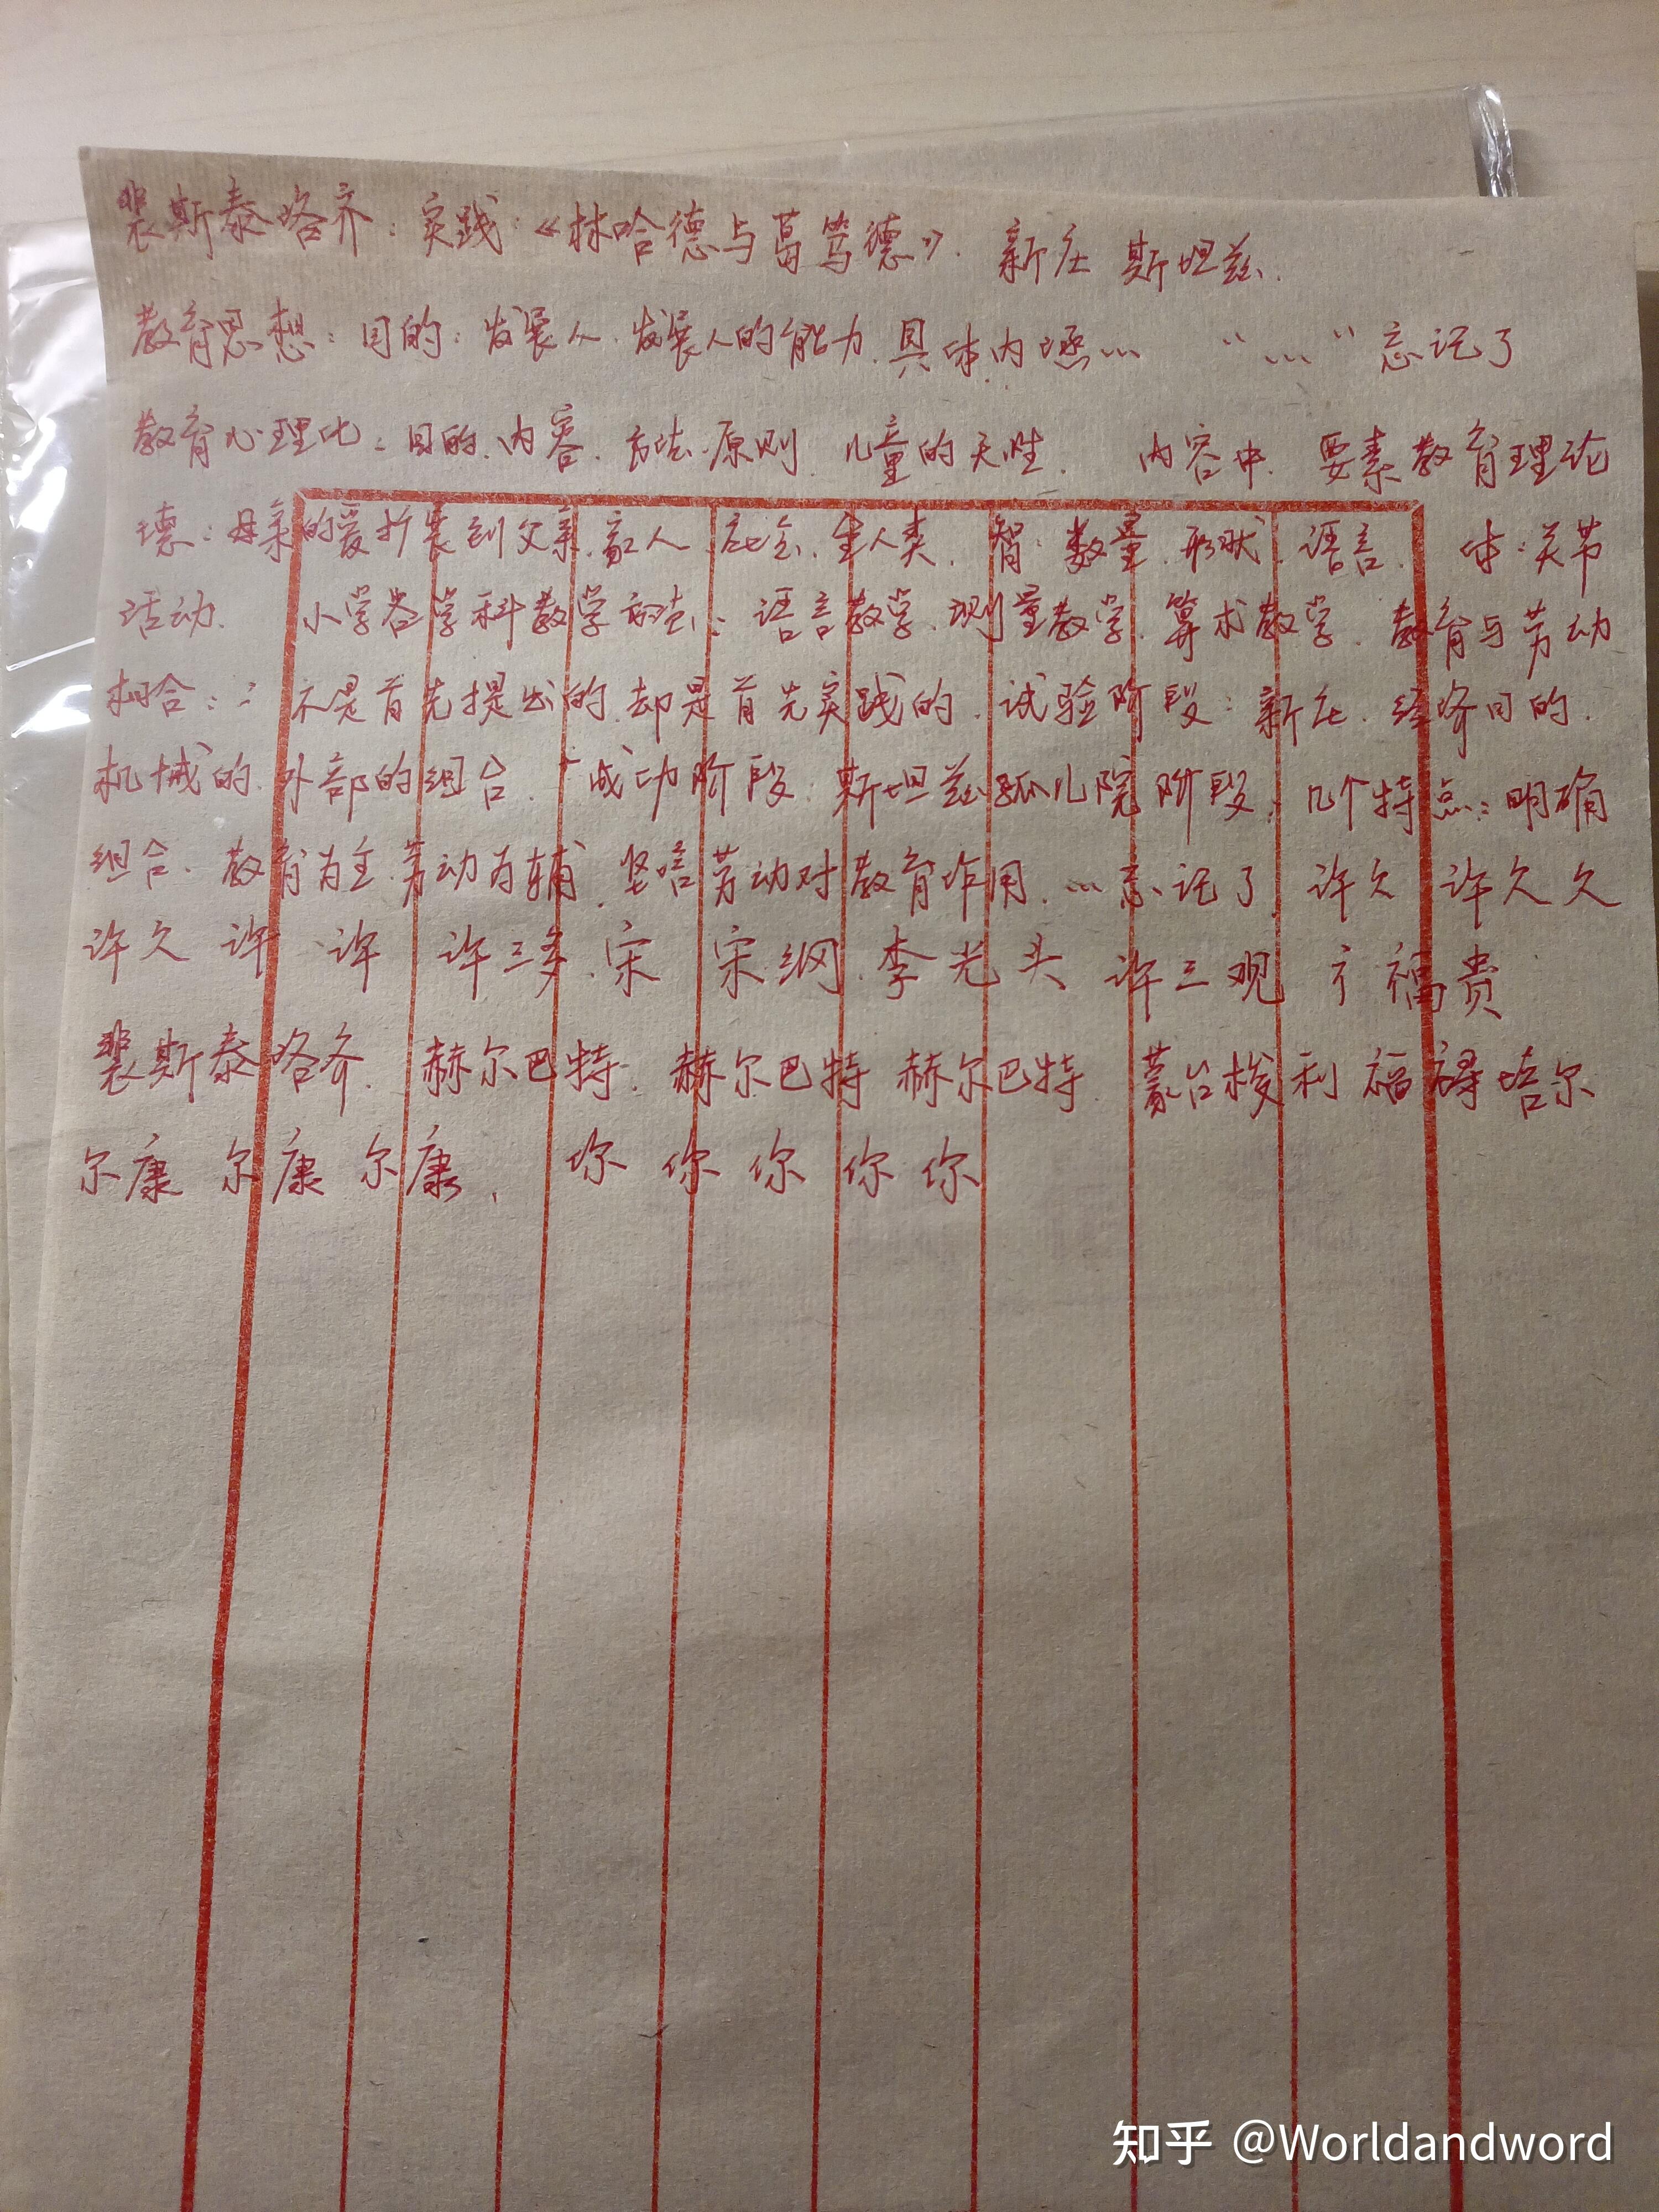 裴斯泰洛齐：实践：《林哈德与葛笃德》．新庄 斯坦兹．
教育思想：目的：发展人．发展人的能力．具体内涵… “…”忘记了
教育心理化：目的．内容．方法．原则．儿童的天性． 内容中．要素教育理论
德：母亲的爱扩展到父亲．家人．社会．全人类．智：数量．形状．语言． 体：关节
活动． 小学各学科教学法：语言教学．测量教学．算术教学．教育与劳动
相合：：不是首先提出的．却是首先实践的．试验阶段：新庄．经济目的．
机械的．外部的组合．成功阶段：斯坦兹孤儿院阶段：几个特点：明确
组合．教育为主．劳动为辅．坚信劳动对教育作用．…忘记了 许久 许久久
许久 许 许 许三多．宋 宋纲．李光头 许三观 福贵
裴斯泰洛齐．赫尔巴特．赫尔巴特 赫尔巴特．蒙台梭利 福禄培尔
尔康 尔康 尔康、 你 你 你 你 你
知乎 @Worldandword